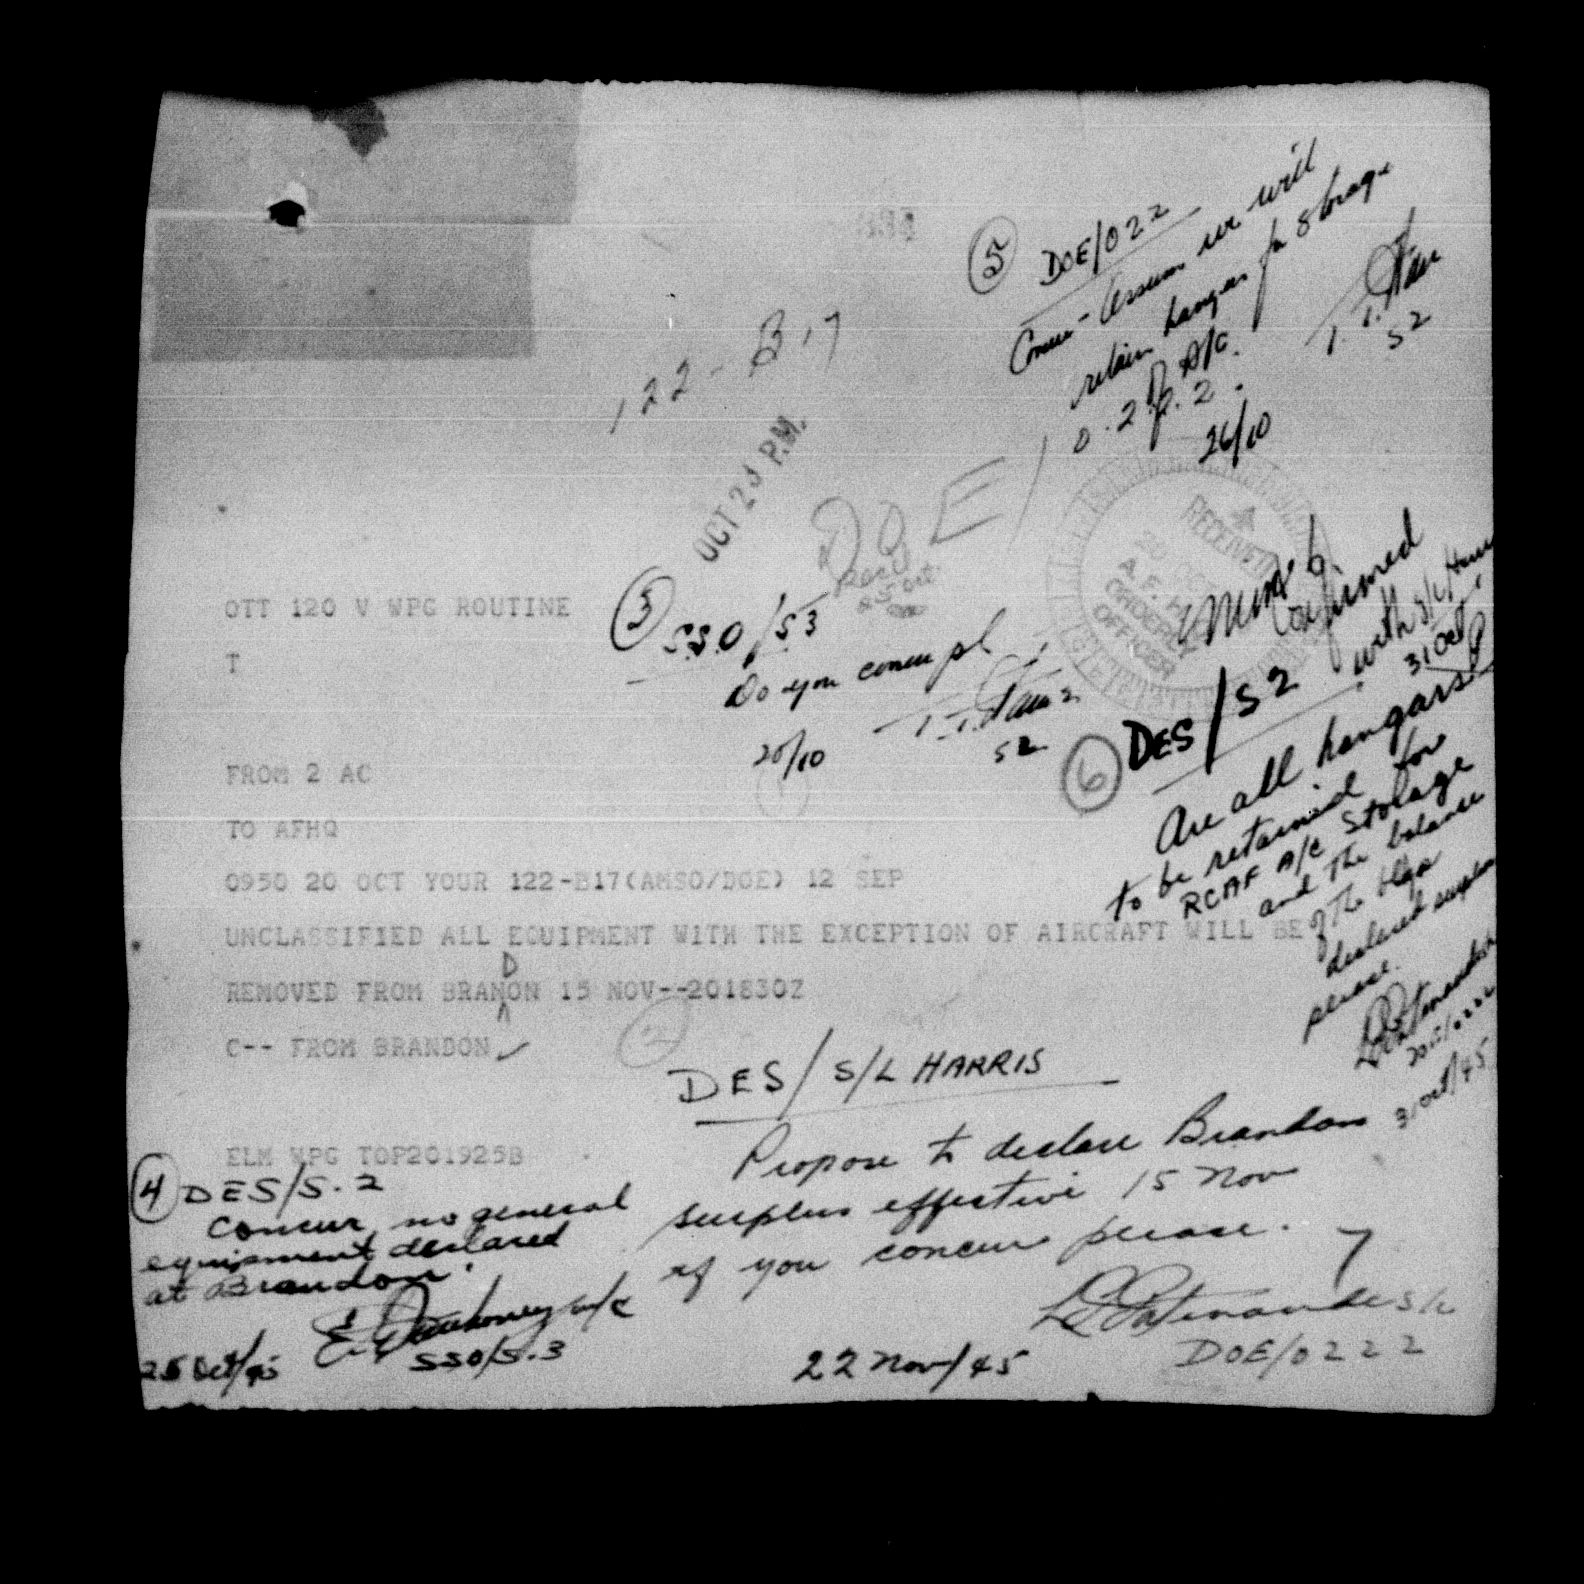 122-B17
OCT 23 P.M.
DOE/
Recd
25 Oct
RECEIVED
20 OCT
A.F.H.Q.
ORDERLY
OFFICER
OTT 120 V WPG ROUTINE
T
FROM 2 AC
TO AFHQ
0950 20 OCT YOUR 122-B17(AMSO/DOE) 12 SEP
UNCLASSIFIED ALL EQUIPMENT WITH THE EXCEPTION OF AIRCRAFT WILL BE
D
REMOVED FROM BRANON 15 NOV--201830Z
C-- FROM BRANDON
ELM WPG TOP201925B
1
2
DES/ S/L HARRIS
Propose to declare Brandon
surplus effective 15 Nov
if you concur please.
DOE/0222
22 Nov/45
3
S.S.O/S.3
Do you concur pl
S2
25/10
4
DES/S.2
Concur, no general
equipment declared
at Brandon.
W/C
SSO/S.3
25 Oct/45
5
DOE/022
Concur - Assume we will
retain hangars for storage
of A/C.
0.2 p. 2.
S2
26/10
6
DES/S2
Are all hangars
to be retained for
RCAF A/C Storage
and the balance
of the bldgs
declared surplus
please.
31 Oct/45
Min 6
Confirmed
with S/L
31 Oct